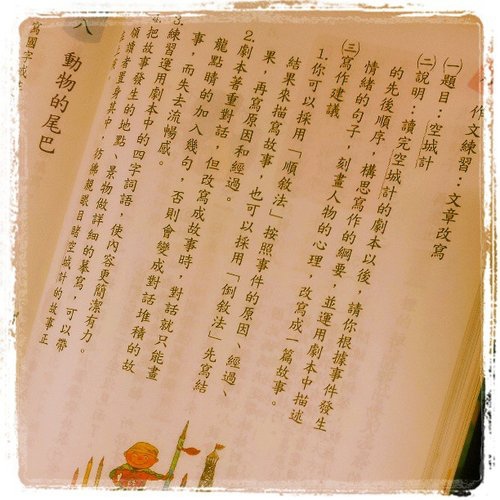 作文練習：文章改寫
㈠題目：空城計
㈡說明：讀完空城計的劇本以後，請你根據事件發生
的先後順序，構思寫作的綱要，並運用劇本中描述
情緒的句子，刻畫人物的心理，改寫成一篇故事。
㈢寫作建議
1.你可以採用「順敘法」按照事件的原因、經過、
結果來描寫故事，也可以採用「倒敘法」先寫結
果，再寫原因和經過。
2.劇本著重對話，但改寫成故事時，對話就只能畫
龍點睛的加入幾句，否則會變成對話堆積的故
事，而失去流暢感。
3.練習運用劇本中的四字詞語，使內容更簡潔有力。
把故事發生的地點、景物做詳細的摹寫，可以帶
領讀者置身其中，彷彿親眼目睹空城計的故事正
八
動物的尾巴
寫國字或注